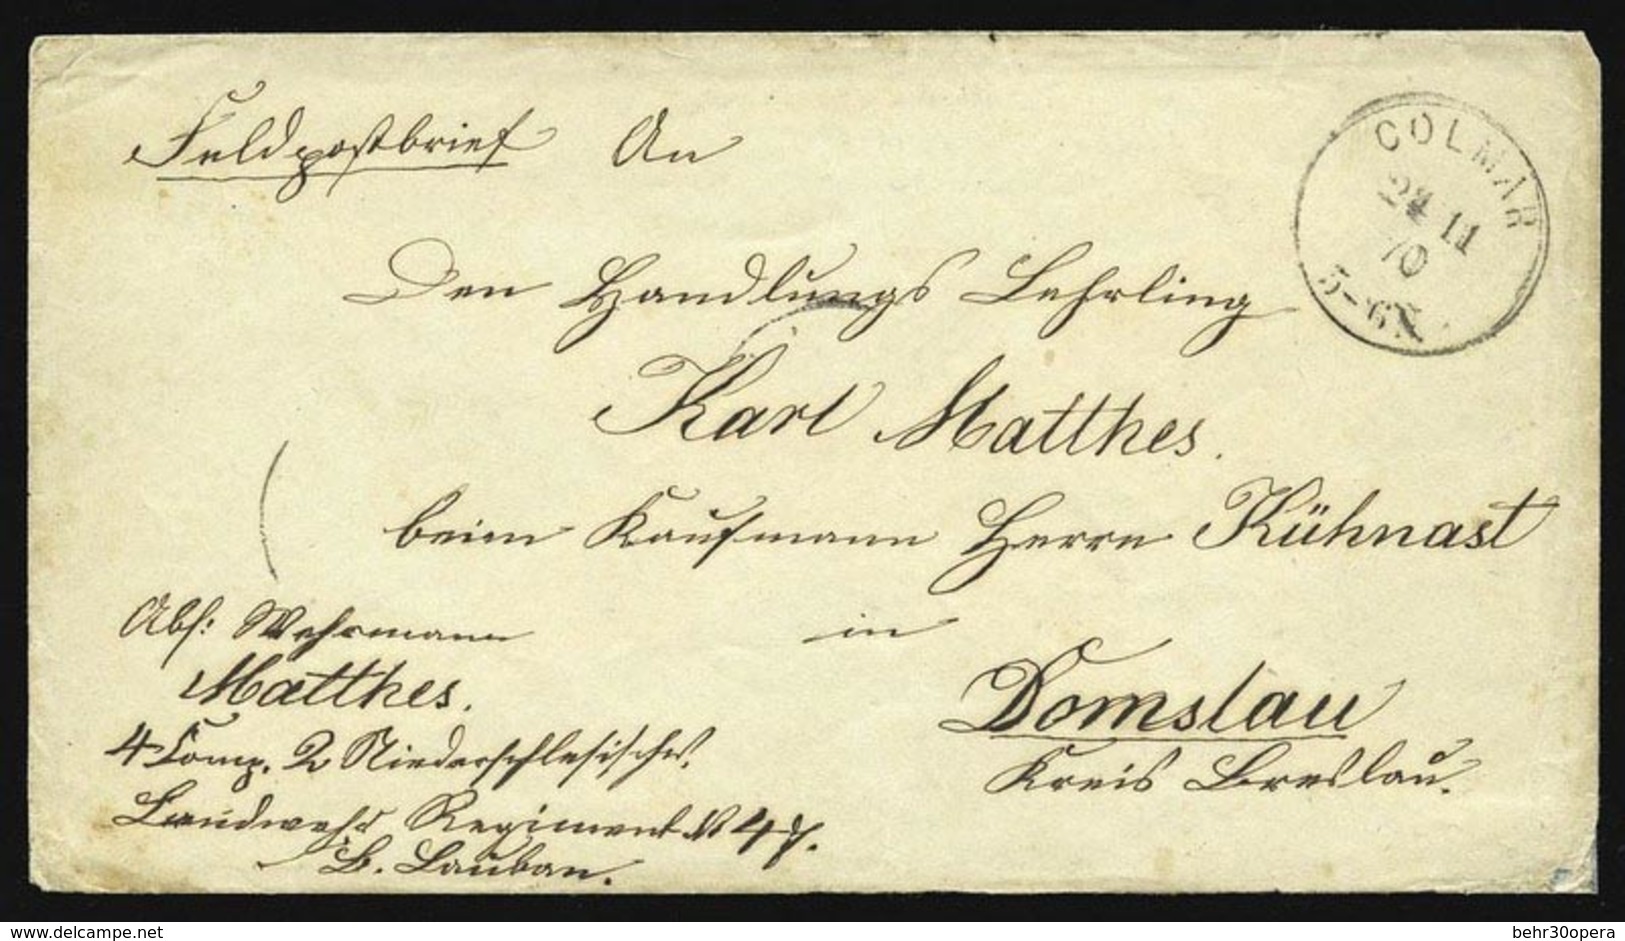 Feldpostbrief An
COLMAR
24 11
70
5-6N
Den Handlungs Lehrling
Karl Matthes.
beim Kaufmann Herrn Kühnast
in
Domslau
Kreis Breslau.
Abs: Wehrmann
Matthes.
4 Comp. 2 Niederschlesisches.
Landwehr Regiment N 47.
B. Lauban.
delcampe.net
behr30opera